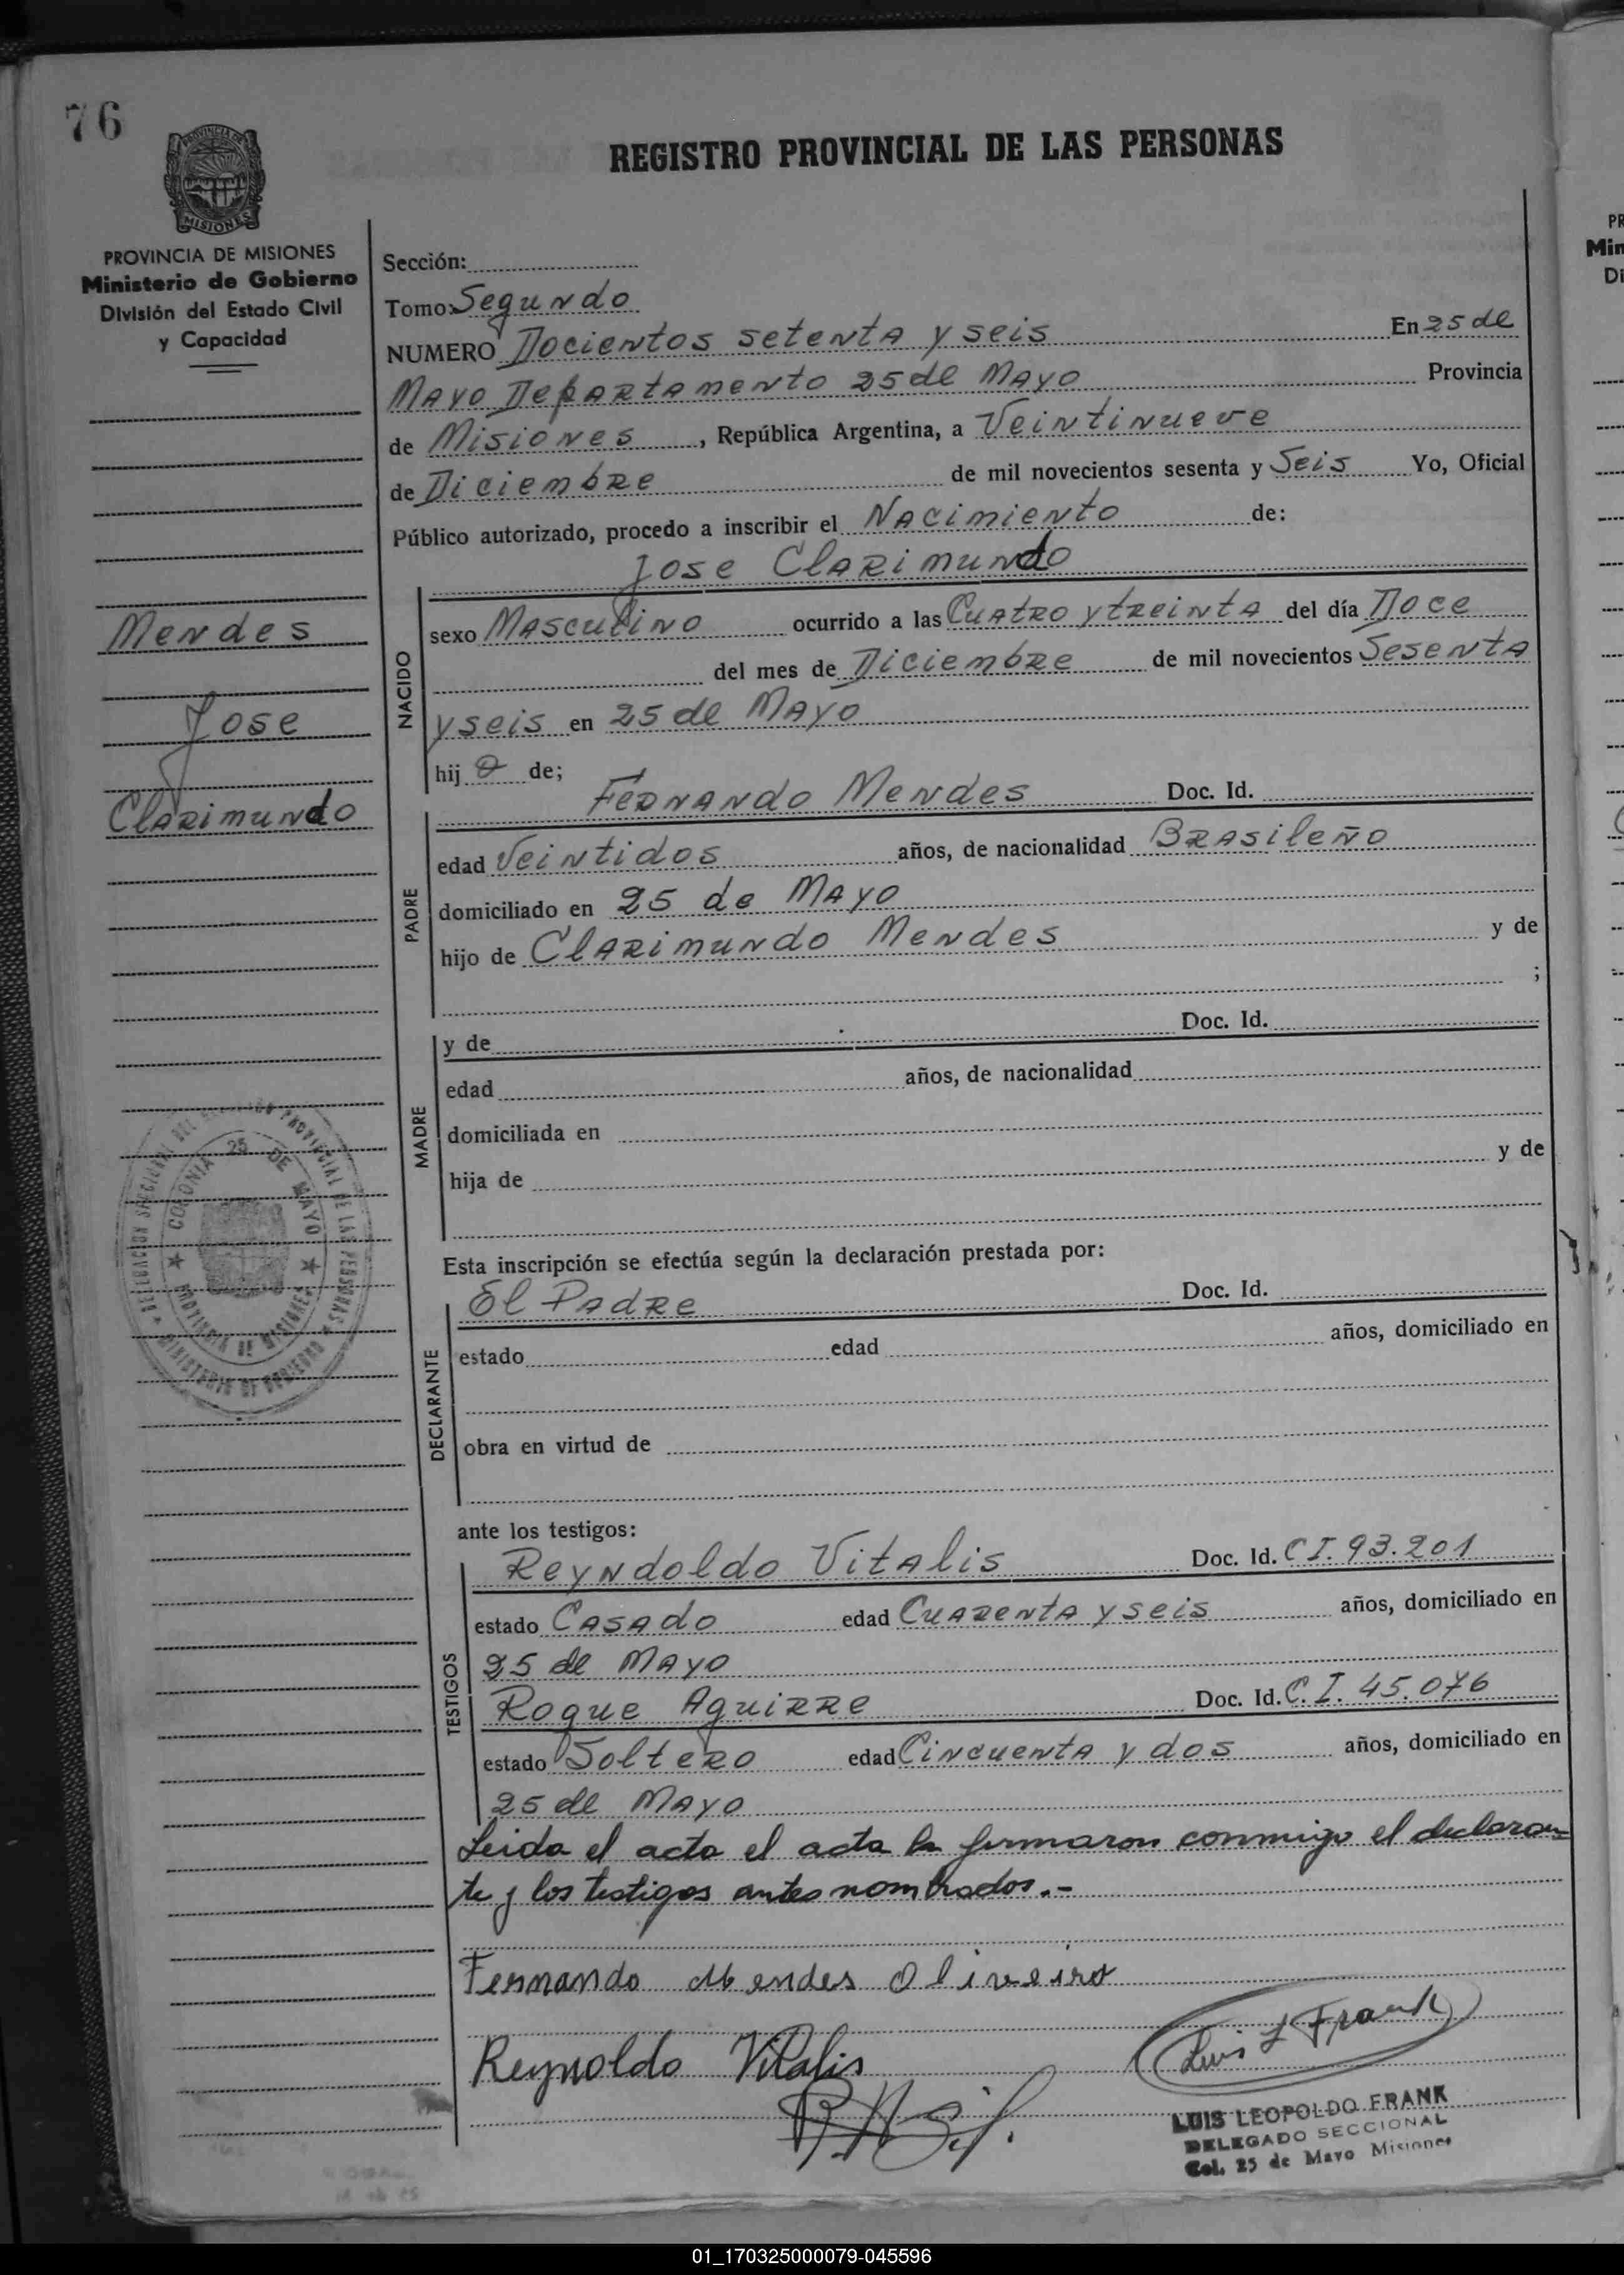 76
PROVINCIA DE
MISIONES
REGISTRO PROVINCIAL DE LAS PERSONAS
PROVINCIA DE MISIONES
Ministerio de Gobierno
División del Estado Civil
y Capacidad
Mendes
Jose
Clarimundo
COLONIA 25 DE MAYO
PROVINCIA DE MISIONES
Sección:
Tomo: Segundo
NUMERO Docientos setenta y seis En 25 de
Mayo Departamento 25 de Mayo Provincia
de Misiones, República Argentina, a Veintinueve
de Diciembre de mil novecientos sesenta y Seis Yo, Oficial
Público autorizado, procedo a inscribir el Nacimiento de:
Jose Clarimundo
NACIDO
sexo Masculino ocurrido a las Cuatro y treinta del día Doce
del mes de Diciembre de mil novecientos Sesenta
y seis en 25 de Mayo
hij o de;
Fernando Mendes Doc. Id.
PADRE
edad Veintidos años, de nacionalidad Brasileño
domiciliado en 25 de Mayo
hijo de Clarimundo Mendes y de
;
y de Doc. Id.
MADRE
edad años, de nacionalidad
domiciliada en
hija de y de
Esta inscripción se efectúa según la declaración prestada por:
El Padre Doc. Id.
DECLARANTE
estado edad años, domiciliado en
obra en virtud de
ante los testigos:
Reyndoldo Vitalis Doc. Id. C I. 93.201
TESTIGOS
estado Casado edad Cuarenta y seis años, domiciliado en
25 de Mayo
Roque Aguirre Doc. Id. C. I. 45.076
estado Soltero edad Cincuenta y dos años, domiciliado en
25 de Mayo
Leida el acta el acta la firmaron conmigo el declaran-
te y los testigos antes nombrados.-
Fernando Mendes Oliveira
Reynoldo Vitalis
Luis L Frank
LUIS LEOPOLDO FRANK
DELEGADO SECCIONAL
Col. 25 de Mayo Misiones
01_170325000079-045596